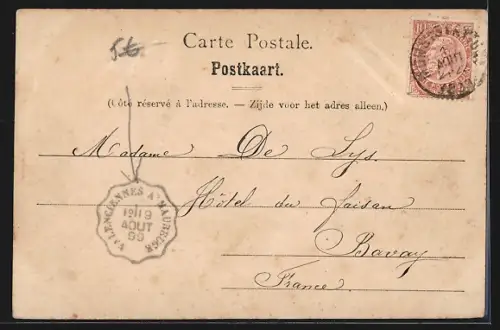 Carte Postale.
Postkaart.
(Côté réservé à l'adresse. — Zijde voor het adres alleen.)
Madame De Lys.
Hôtel du faisan
Bavay
France.
VALENCIENNES A MAUBEUGE
19
AOUT
99
10
AOUT